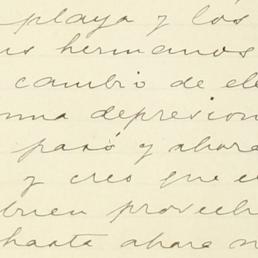 playa y los
hermanos
cambio de
depresion
pasó y ahora
y creo que
buen provech
hasta ahora n